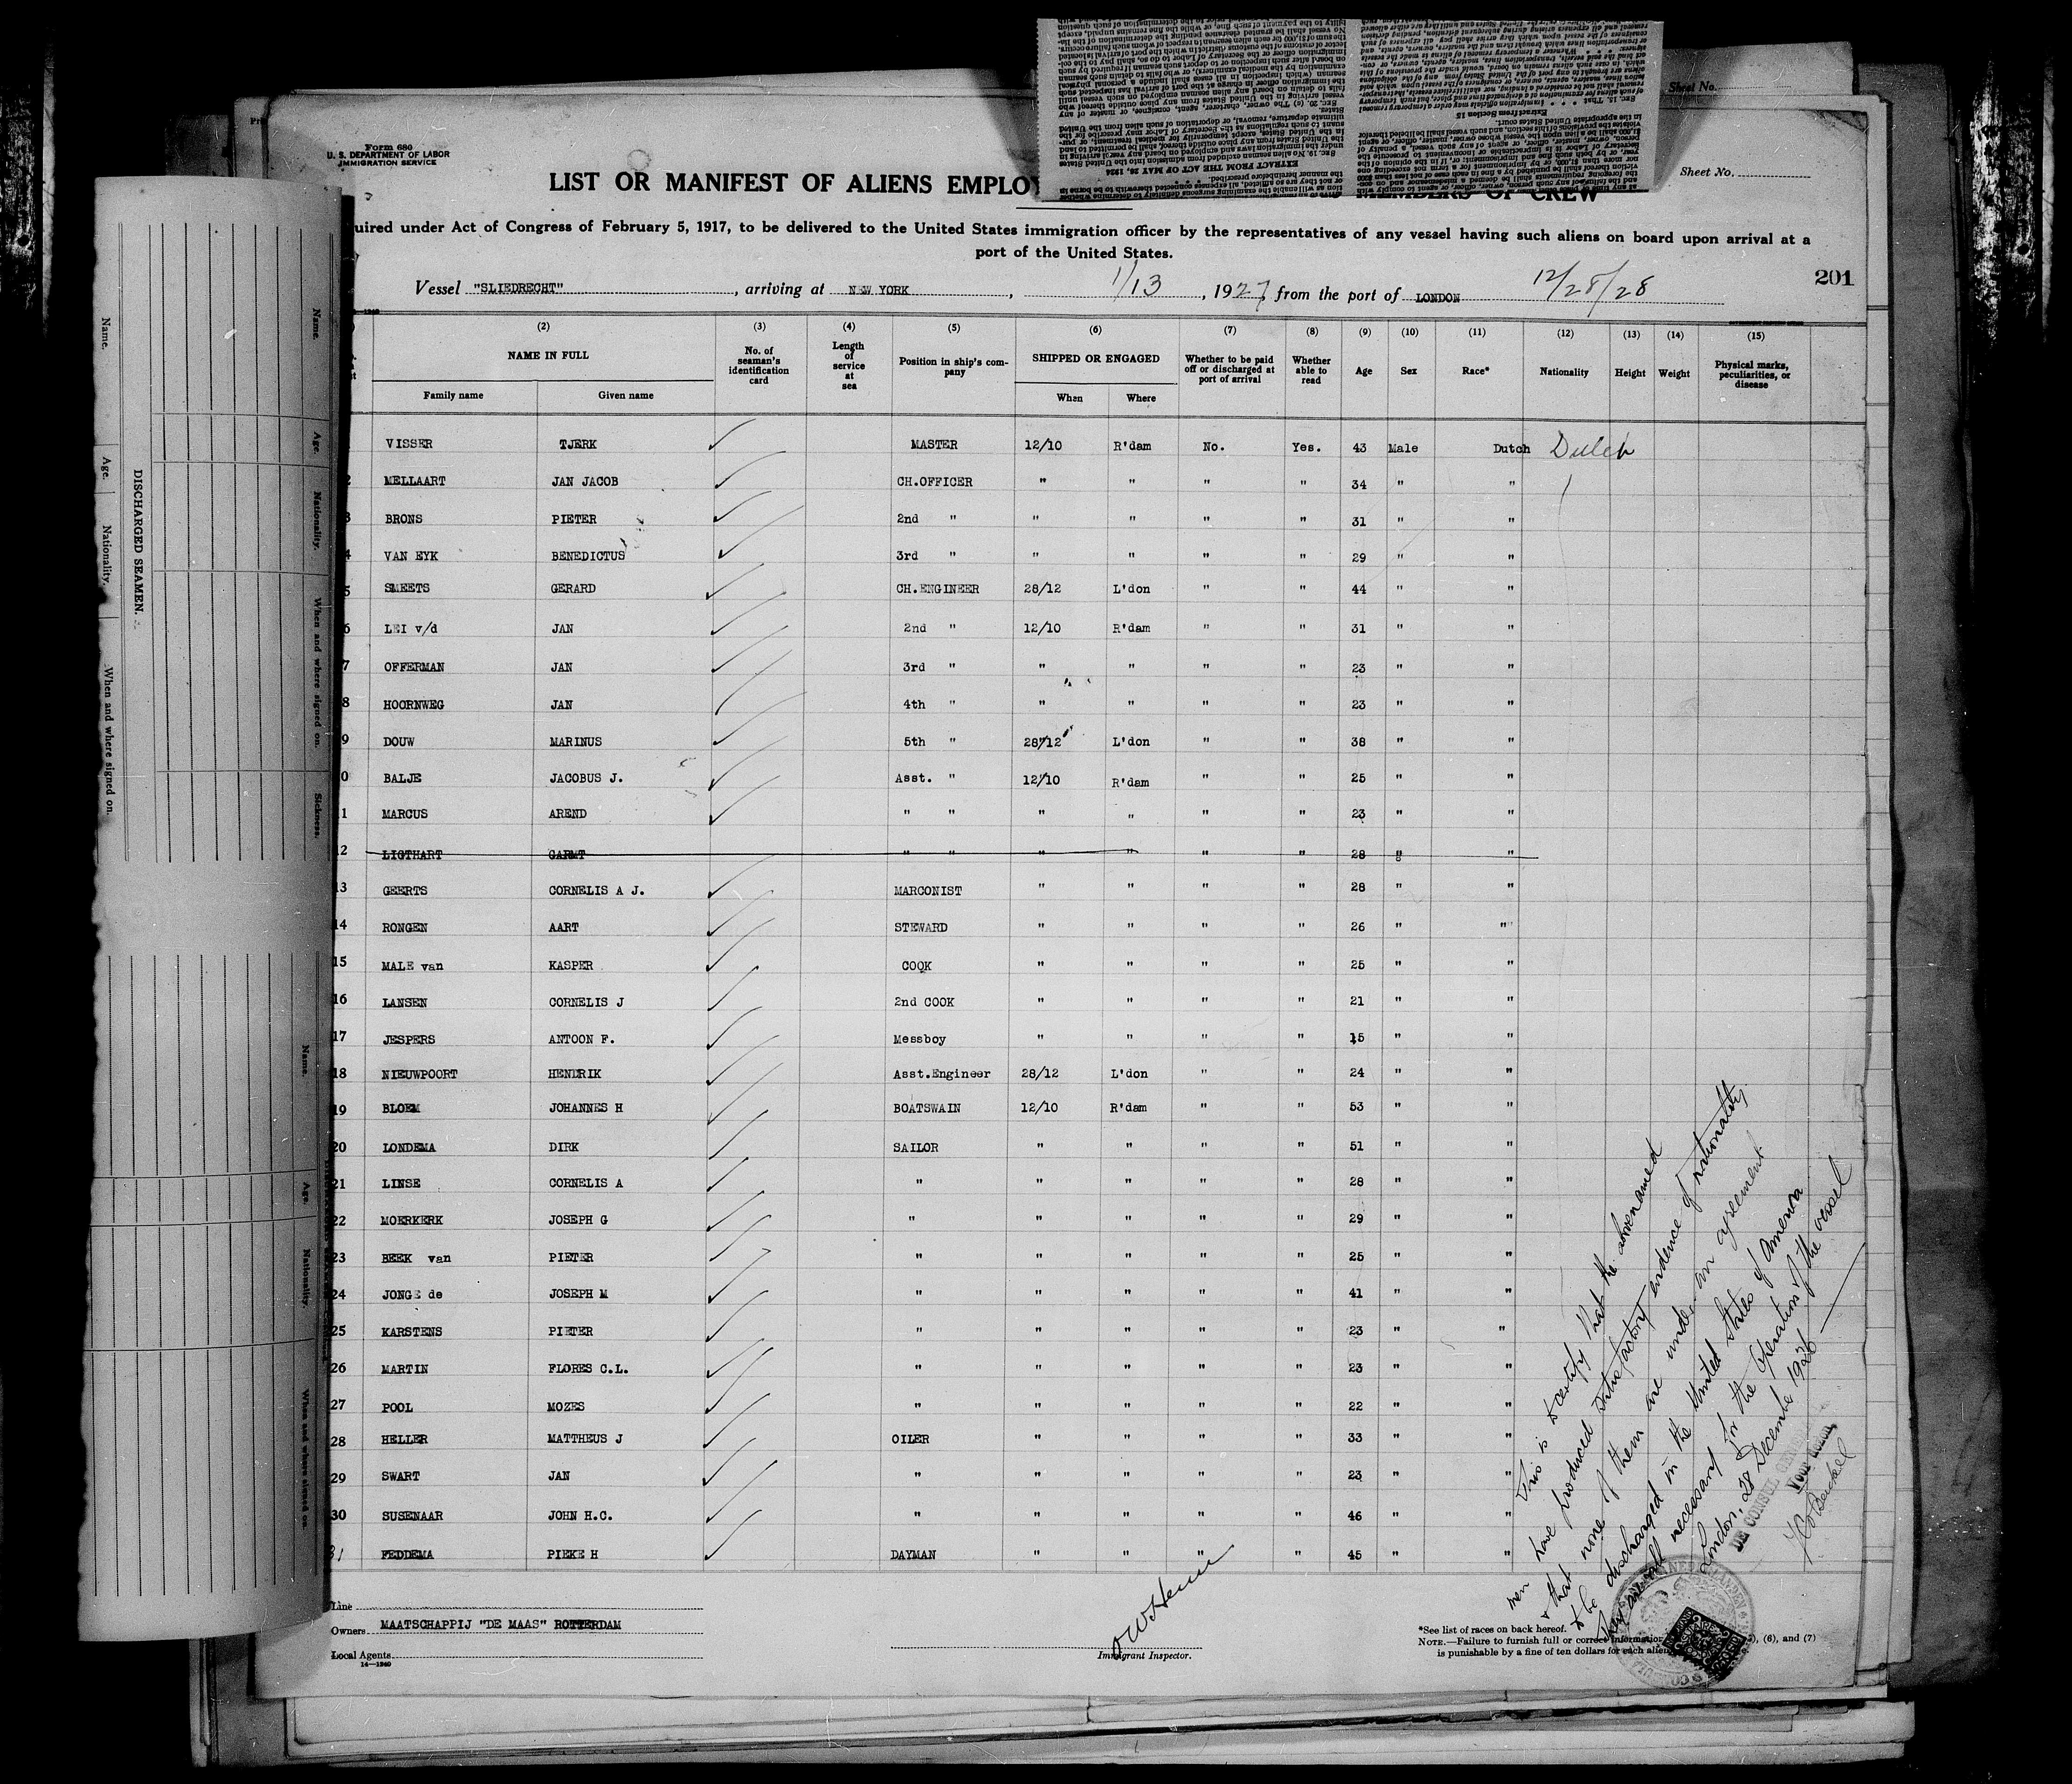 Form 680
U. S. DEPARTMENT OF LABOR
IMMIGRATION SERVICE
Sheet No.
Sheet No.
LIST OR MANIFEST OF ALIENS EMPLO
MEMBERS OF CREW
uired under Act of Congress of February 5, 1917, to be delivered to the United States immigration officer by the representatives of any vessel having such aliens on board upon arrival at a
port of the United States.
Vessel "SLIEDRECHT", arriving at NEW YORK, 1/13, 1927, from the port of LONDON 12/28/28
201
(2) (3) (4) (5) (6) (7) (8) (9) (10) (11) (12) (13) (14) (15)
NAME IN FULL
Family name Given name
No. of seaman's identification card
Length of service at sea
Position in ship's company
SHIPPED OR ENGAGED
When Where
Whether to be paid off or discharged at port of arrival
Whether able to read
Age Sex Race* Nationality Height Weight
Physical marks, peculiarities, or disease
VISSER TJERK MASTER 12/10 R'dam No. Yes. 43 Male Dutch Dutch
2 MELLAART JAN JACOB CH.OFFICER " " " " 34 " "
3 BRONS PIETER 2nd " " " " " 31 " "
4 VAN EYK BENEDICTUS 3rd " " " " " 29 " "
5 SMEETS GERARD CH.ENGINEER 28/12 L'don " " 44 " "
6 LEI v/d JAN 2nd " 12/10 R'dam " " 31 " "
7 OFFERMAN JAN 3rd " " " " " 23 " "
8 HOORNWEG JAN 4th " " " " " 23 " "
9 DOUW MARINUS 5th " 28/12 L'don " " 38 " "
0 BALJE JACOBUS J. Asst. " 12/10 R'dam " " 25 " "
1 MARCUS AREND " " " " " " 23 " "
12 LIGTHART GARMT " " " " " " 28 " "
13 GEERTS CORNELIS A J. MARCONIST " " " " 28 " "
14 RONGEN AART STEWARD " " " " 26 " "
15 MALE van KASPER COOK " " " " 25 " "
16 LANSEN CORNELIS J 2nd COOK " " " " 21 " "
17 JESPERS ANTOON F. Messboy " " " " 15 " "
18 NIEUWPOORT HENDRIK Asst.Engineer 28/12 L'don " " 24 " "
19 BLOEM JOHANNES H BOATSWAIN 12/10 R'dam " " 53 " "
20 LONDEMA DIRK SAILOR " " " " 51 " "
21 LINSE CORNELIS A " " " " " 28 " "
22 MOERKERK JOSEPH G " " " " " 29 " "
23 BEEK van PIETER " " " " " 25 " "
24 JONGE de JOSEPH M " " " " " 41 " "
25 KARSTENS PIETER " " " " " 23 " "
26 MARTIN FLORES C.L. " " " " " 23 " "
27 POOL MOZES " " " " " 22 " "
28 HELLER MATTHEUS J OILER " " " " 33 " "
29 SWART JAN " " " " " 23 " "
30 SUSENAAR JOHN H.C. " " " " " 46 " "
31 FEDDEMA PIEKE H DAYMAN " " " " 45 " "
This is to certify that the abovenamed
men have produced satisfactory evidence of nationality
& that none of them are under an agreement
to be discharged in the United States of America
They are all necessary for the operation of the vessel
London, 28 December 1926
DE CONSUL GENERAAL
Voor dezen
Line
Owners MAATSCHAPPIJ "DE MAAS" ROTTERDAM
Local Agents
14—1240
Immigrant Inspector.
*See list of races on back hereof.
NOTE.—Failure to furnish full or correct information , (6), and (7)
is punishable by a fine of ten dollars for each alien
DISCHARGED SEAMEN.
Name. Age. Nationality. When and where signed on.
Name. Age. Nationality. When and where signed on. Sickness.
Name. Age. Nationality. When and where signed on.
EXTRACT FROM THE ACT OF MAY 26, 1924
Extract from Section 15